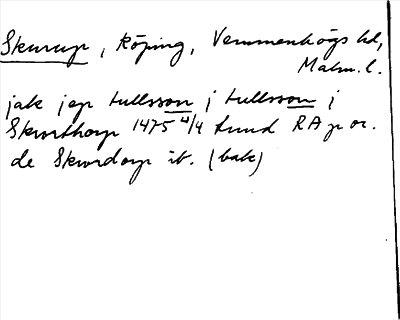 Skurup, köping, Vemmenhögs hd,
Malm. l.
jak jep tullsson j tullson j
Skurthorp 1475 4/4 Lund RA p or.
de Skurdorp ib. (bak)